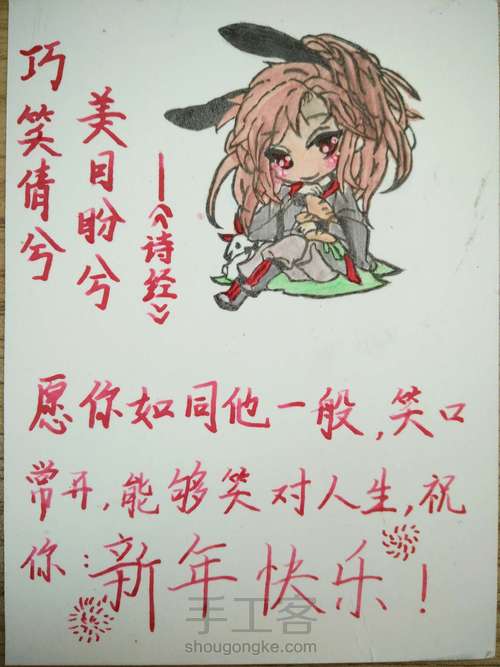 巧笑倩兮
美目盼兮
——《诗经》
愿你如同他一般,笑口
常开,能够笑对人生,祝
你:新年快乐!
手工客
shougongke.com